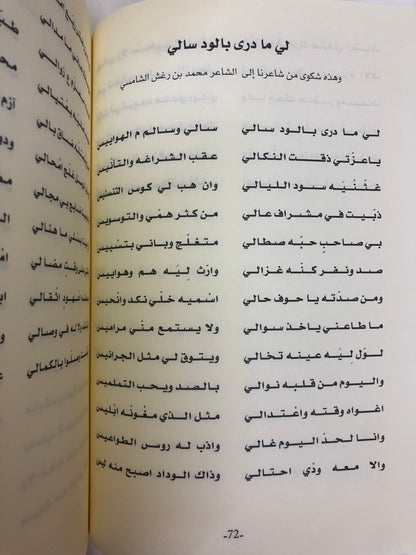 لي ما درى بالود سالي
وهذه شكوى من شاعرنا إلى الشاعر محمد بن رغش الشامسي
لي ما درى بالود سالي سالي وسالم م الهواييس
ياعزتي ذقت النكالي عقب الشراغه والتانيس
غثنيه سود الليالي وان هب لي كوس التسنيس
ذبيت في مشراف عالي من كثر همي والتوسويس
بي صاحب حبه صطالي متغلج وباني بتسييس
صد ونفر كنه غزالي وارث ليه هم وهواييس
ومن صدته يا حوف حالي اسميه خلي نكد وانحيس
ما طاعني ياخذ سوالي ولا يستمع مني مراميس
لول ليه عينه تخالي ويتوق لي مثل الجرانيس
واليوم من قلبه نوالي بالصد ويحب التمليس
اغواه وقته واعتدالي مثل الذي مغونه ابليس
وانا لحد اليوم غالي واذب له روس الطواعيس
والا معه وذي احتالي وذاك الوداد اصبح منه ليس
-72-